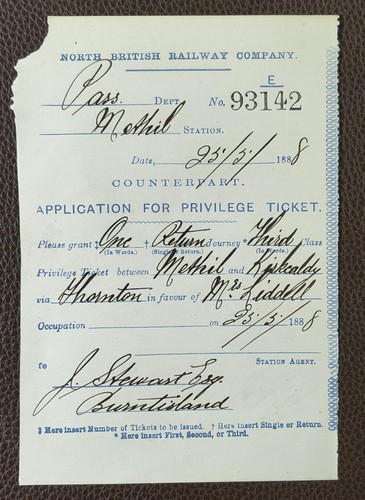 NORTH BRITISH RAILWAY COMPANY.
E
Pass. DEPT. No. 93142
Methil STATION.
Date, 25/5/ 1888
COUNTERPART.
APPLICATION FOR PRIVILEGE TICKET.
Please grant ‡ One † Return Journey * Third Class
(In Words.) (Single or Return.) (In Words.)
Privilege Ticket between Methil and Kirkcaldy
via Thornton in favour of Mrs Liddell
Occupation on 25/5/ 1888
STATION AGENT.
To
J. Stewart Esq.
Burntisland
‡ Here insert Number of Tickets to be issued. † Here insert Single or Return.
* Here insert First, Second, or Third.